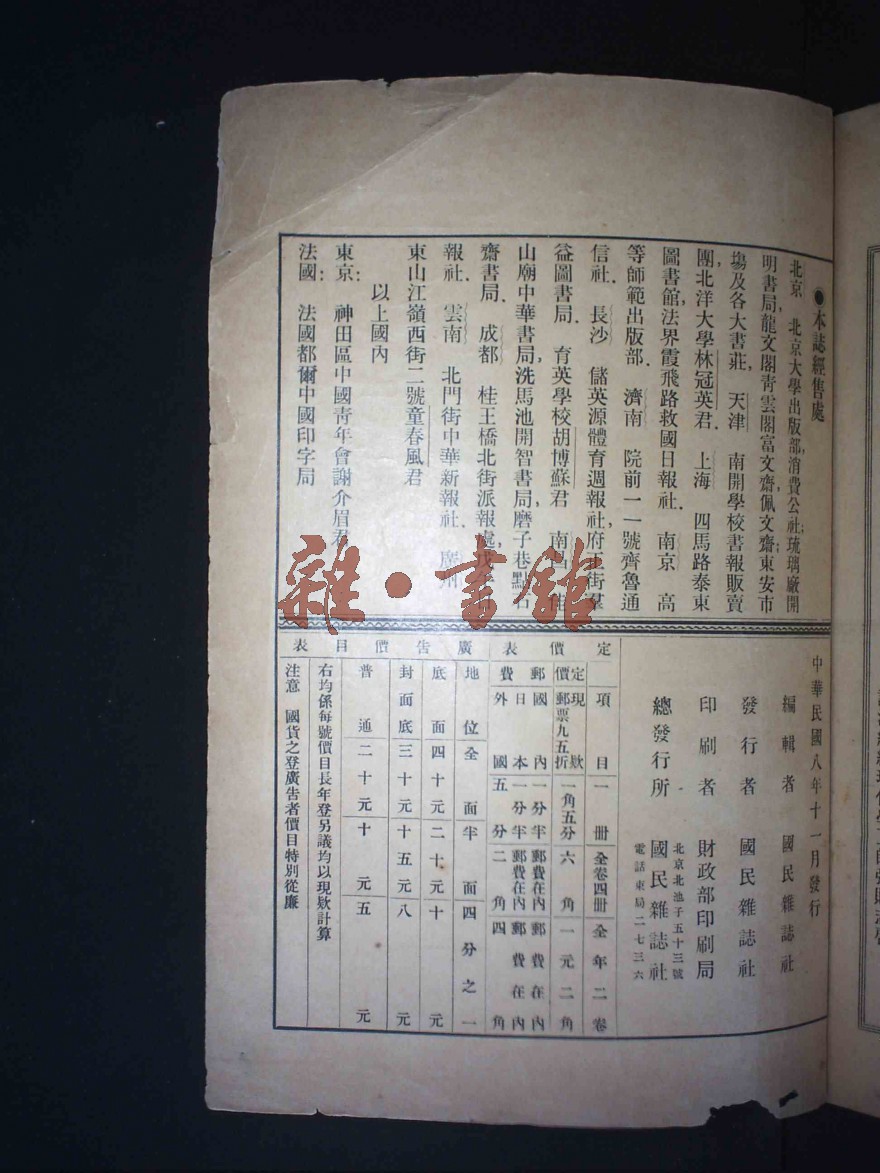 ●本誌經售處
北京　北京大學出版部，消費公社；琉璃廠開
明書局，龍文閣靑雲閣富文齋，佩文齋；東安市
塲及各大書莊，天津　南開學校書報販賣
團，北洋大學林冠英君．上海　四馬路泰東
圖書館，法界霞飛路救國日報社．南京　高
等師範出版部．濟南　院前一一號齊魯通
信社．長沙　儲英源體育週報社，府正街羣
益圖書局．育英學校胡博蘇君　南昌
山廟中華書局，洗馬池開智書局，磨子巷點石
齋書局．成都　桂王橋北街派報處，
報社．雲南　北門街中華新報社．廣州
東山江嶺西街二號童春風君
以上國內
東京：　神田區中國靑年會謝介眉君
法國：　法國都爾中國印字局
中華民國八年十一月發行
編輯者　國民雜誌社
發行者　國民雜誌社
印刷者　財政部印刷局
總發行所　國民雜誌社
北京北池子五十三號
電話東局二七三六
定價表
項目　一冊　全卷四冊　全年二卷
定價　現欵　郵票九五折　一角五分　六角　一元二角
郵費　國內　一分半　郵費在內　郵費在內
日本　一分半　郵費在內　郵費在內
外國　五分　二角　四角
廣告價目表
地位　全面　半面　四分之一
底面　四十元　二十元　十元
封面底　三十元　十五元　八元
普通　二十元　十元　五元
右均係每號價目長年登另議均以現欵計算
注意　國貨之登廣告者價目特別從廉
雜·書館